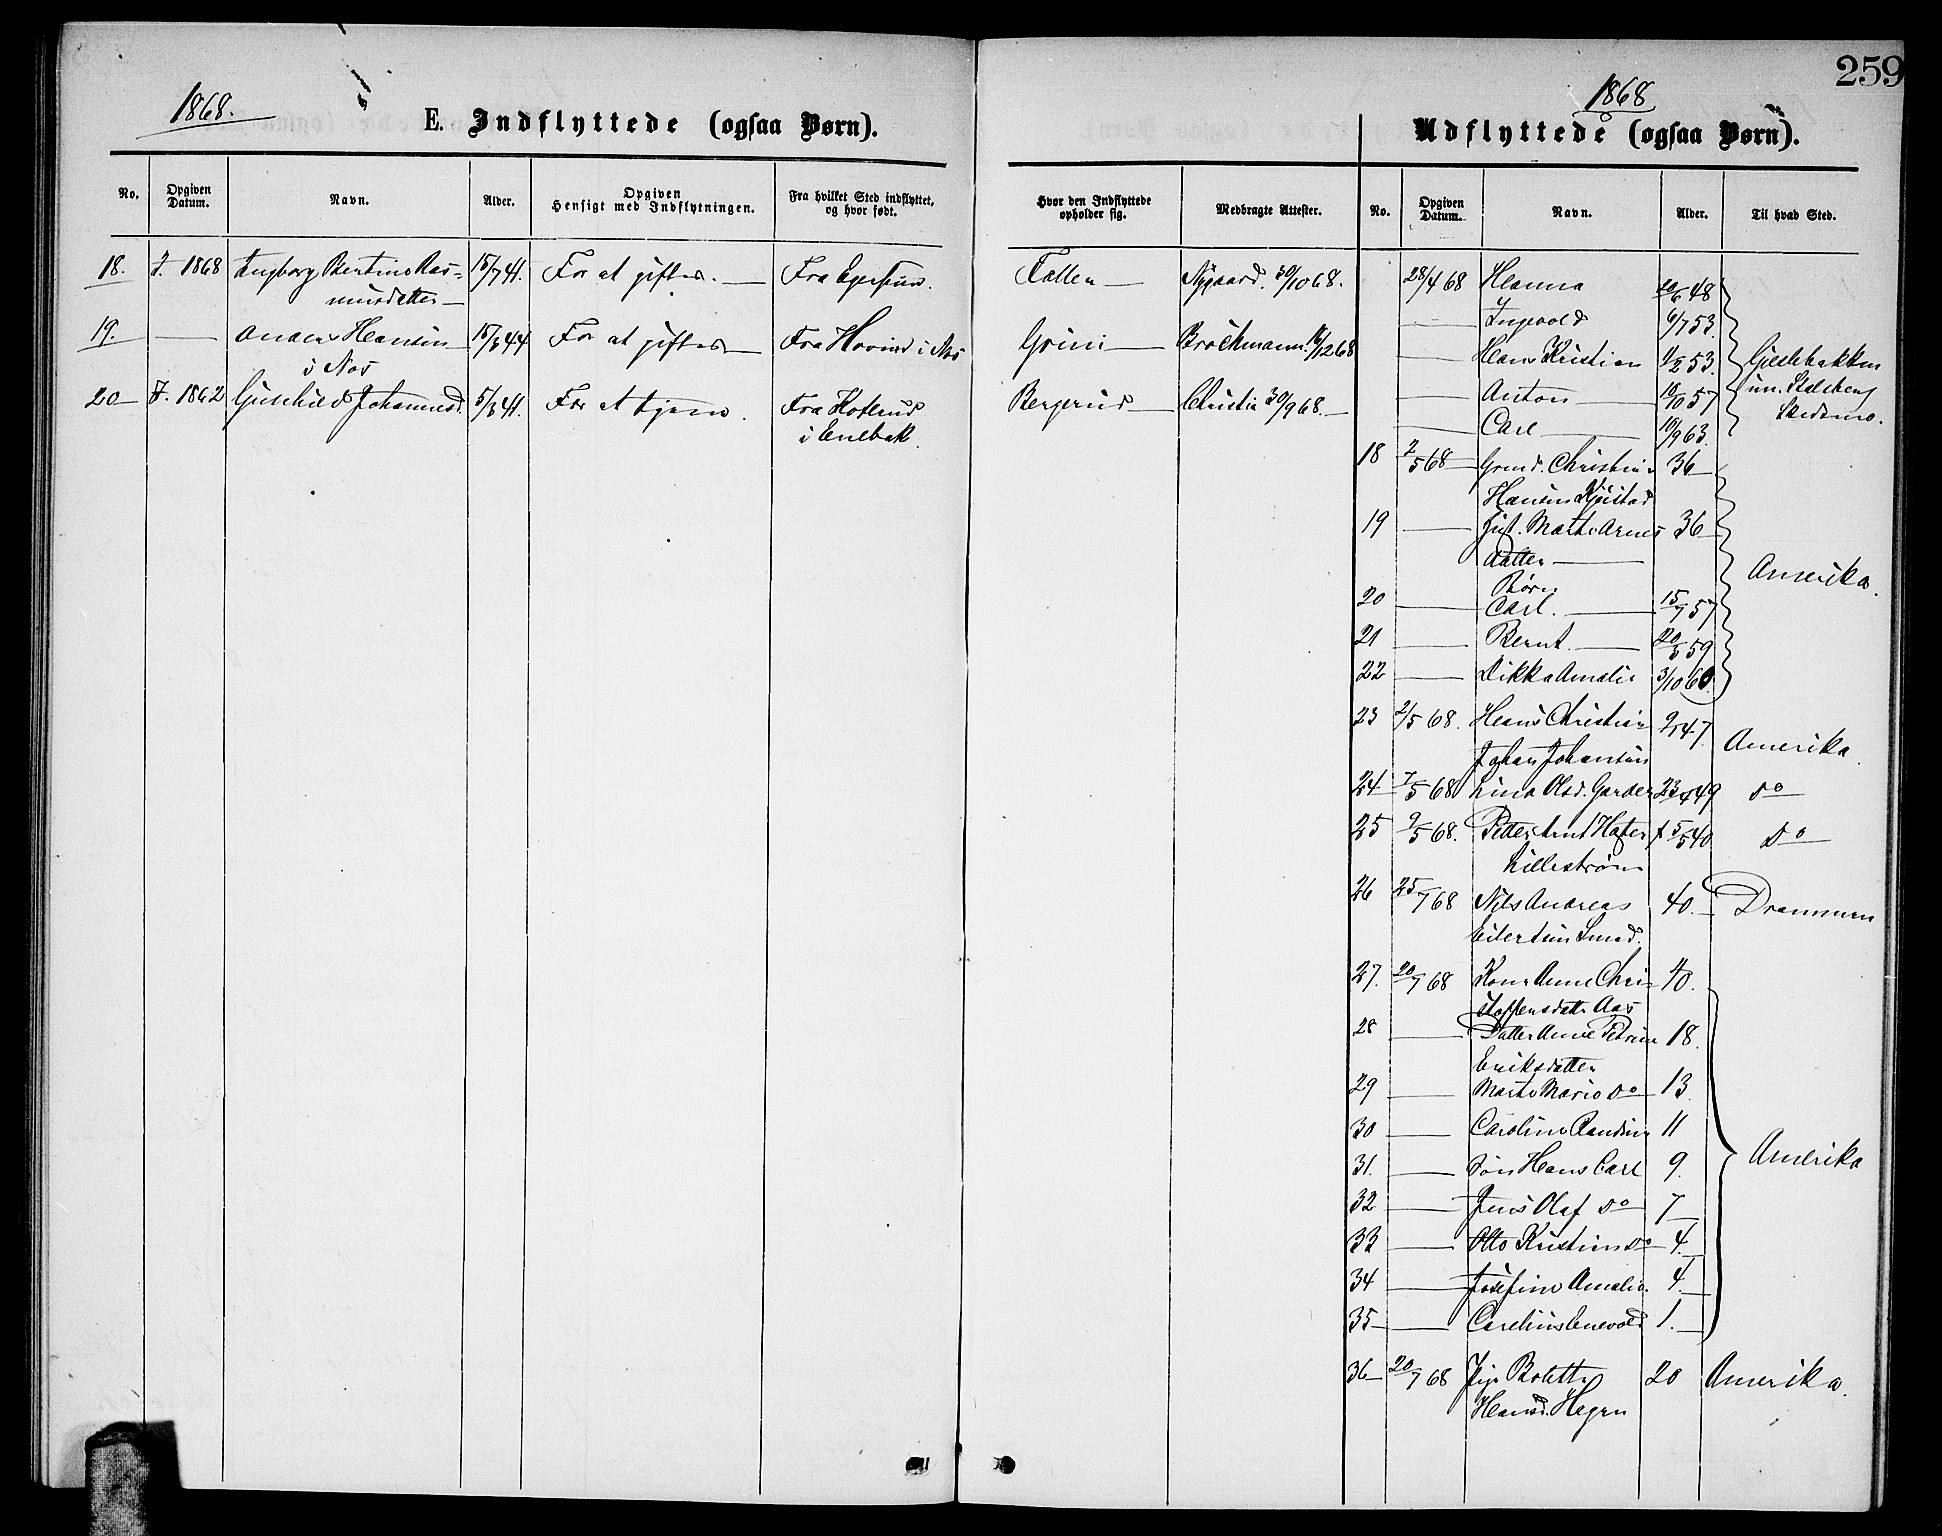 259
1868.
E. Indflyttede (ogsaa Børn).
No. Opgiven Datum. Navn. Alder. Opgiven Hensigt med Indflytningen. Fra hvilket Sted indflyttet, og hvor født.
18. 1868 Ingborg Bertine Ras-
musdatter
15/7 41. For at giftes. Fra Egersund.
19. Anders Hansen
i Nos
15/3 44 For at giftes Fra Hovind i Nos
20 Gunhild Johannesd. 5/3 41. For at tjene. Fra
i Enebak.
1868
Udflyttede (ogsaa Børn).
Hvor den Indflyttede opholder sig. Medbragte Attester. No. Opgiven Datum. Navn. Alder. Til hvad Sted.
Nygaard. 30/10 68.
Grini Brochmann. 68
Bergerud Christie 30/9 68.
28/4 68 Hanna 20/6 48
Ingvold 6/7 53.
Hans Kristian 53.
Anton 10/10 57
Carl 10/9 63.
Skedsmo.
18 2/5 68 Christian 36
Hansen
19 Marte Arnes 36
datter
Børn
20 Carl. 15/7 57
21 Bernt. 20/5 59
22 Dikka Amalie 3/10 60.
Amerika.
23 2/5 68. Hans Christian 47.
Johan Johansen
Amerika.
24 7/5 68 Lina Olsd. Garder 23/4 49 do
25 9/5 68. Petter Arnt
Lillestrøm
5/5 40 do
26 25/7 68 Nils Andreas 40. Drammen
Eilertsen Smed.
27. 20/7 68 Kone Anne Chri- 40.
stoffersdatter Aas
28 Datter Anne Petrine 18.
Eriksdatter
29 Marte Marie do 13.
30 Caroline Randine 11
31. Søn Hans Carl 9.
32 Jens Olaf do 7
33 Otto Kristian do 4.
34 Josefine Amalie. 4.
35 Carelius Enevold 1.
Amerika
36 20/7 68 Pige Bolette 20 Amerika.
Hansd. Hagen